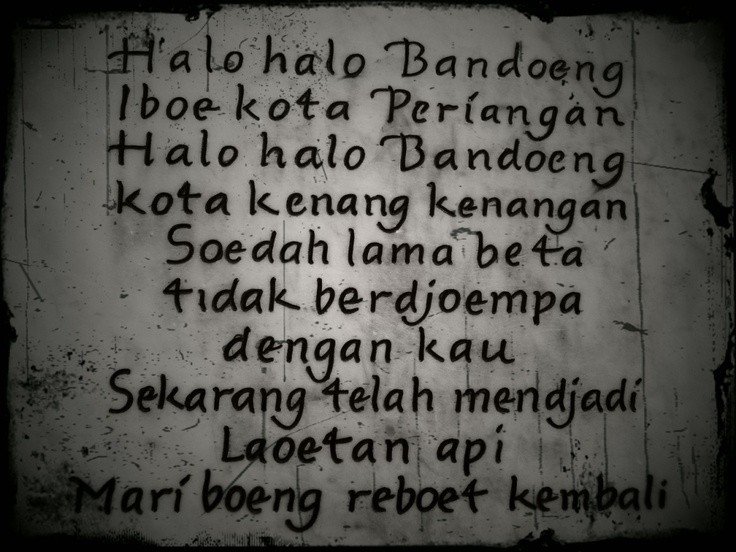 Halo halo Bandoeng
Iboe kota Periangan
Halo halo Bandoeng
kota kenang kenangan
Soedah lama beta
tidak berdjoempa
dengan kau
Sekarang telah mendjadi
Laoetan api
Mari boeng reboet kembali